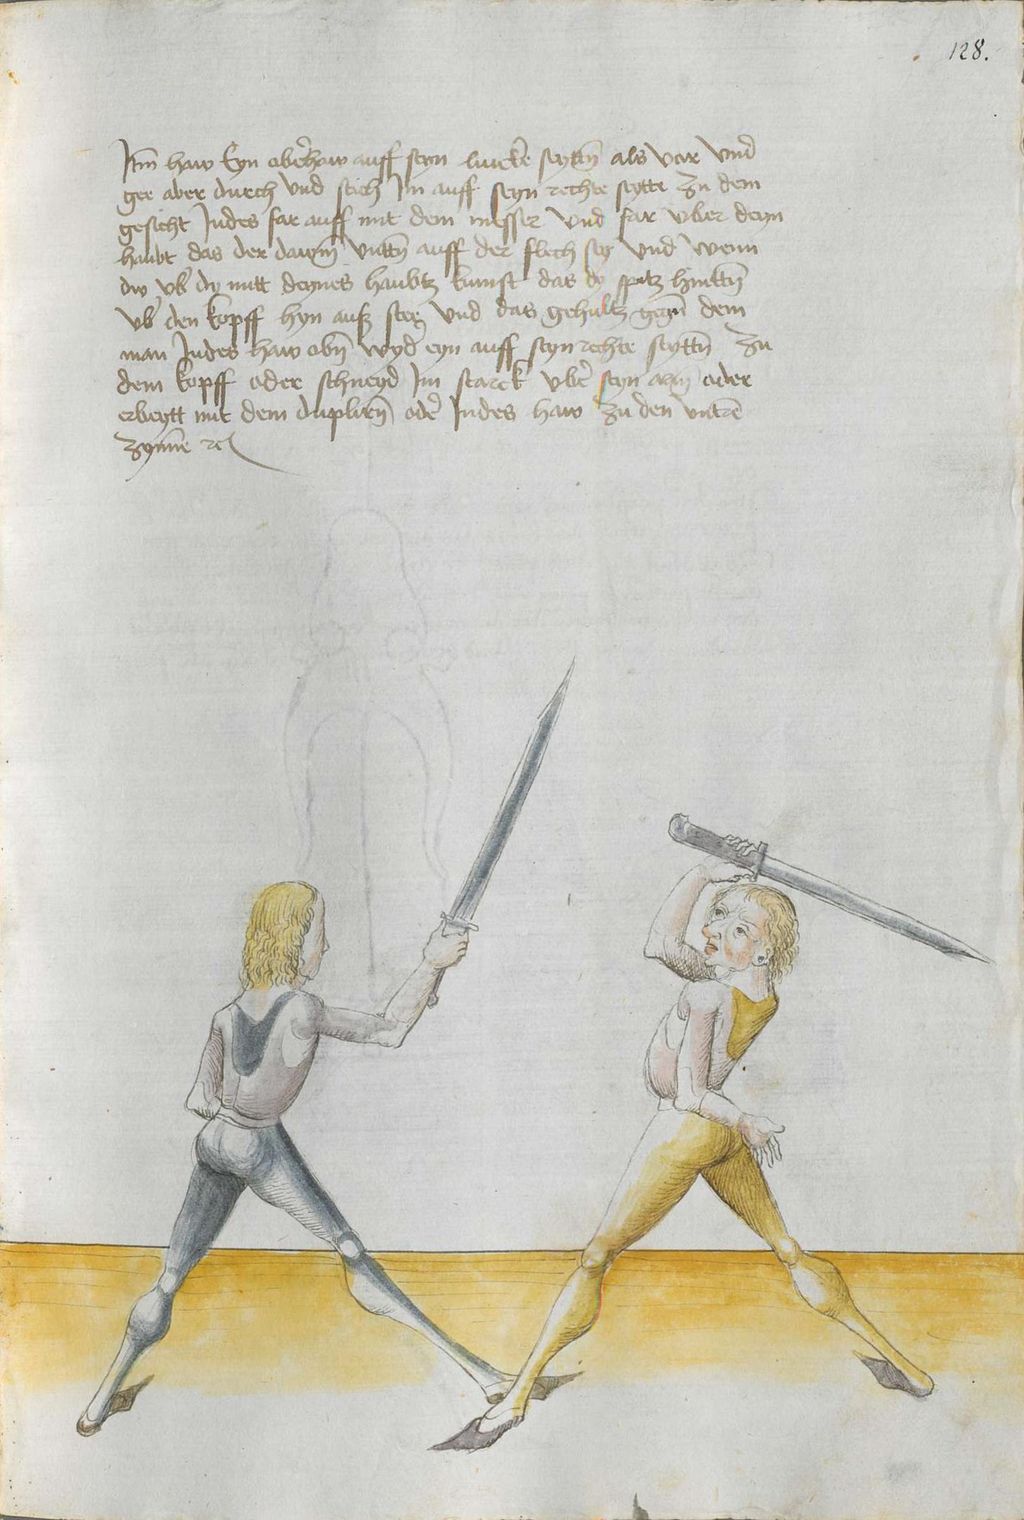 128.
Jtm̄ haw Eyn obe͛haw auff seyn lincke͛ seytn̄ als vor vnd
gee aber durch vnd stich Jm auff seyn rechte seytte zu dem
gesicht Jndes far auff mit dem messer vnd far vber deyn
haubt das der dawm̄ vntn̄ auff der flech sey vnd wenn
dw vb͛ dy mitt deynes haubtz kumst das dy spitz hinttn̄
vb͛ den kopff hyn auß stee vnd das gehultz gegn̄ dem
man Jndes haw obn̄ wyd͛ eyn auff seyn rechte seyttn̄ zu
dem kopff oder schneyd Jm starck vbe͛ seyn arm̄ oder
erbeytt mit dem duplirn̄ ode͛ Jndes haw zu den vntrē
zynnē ꝛc